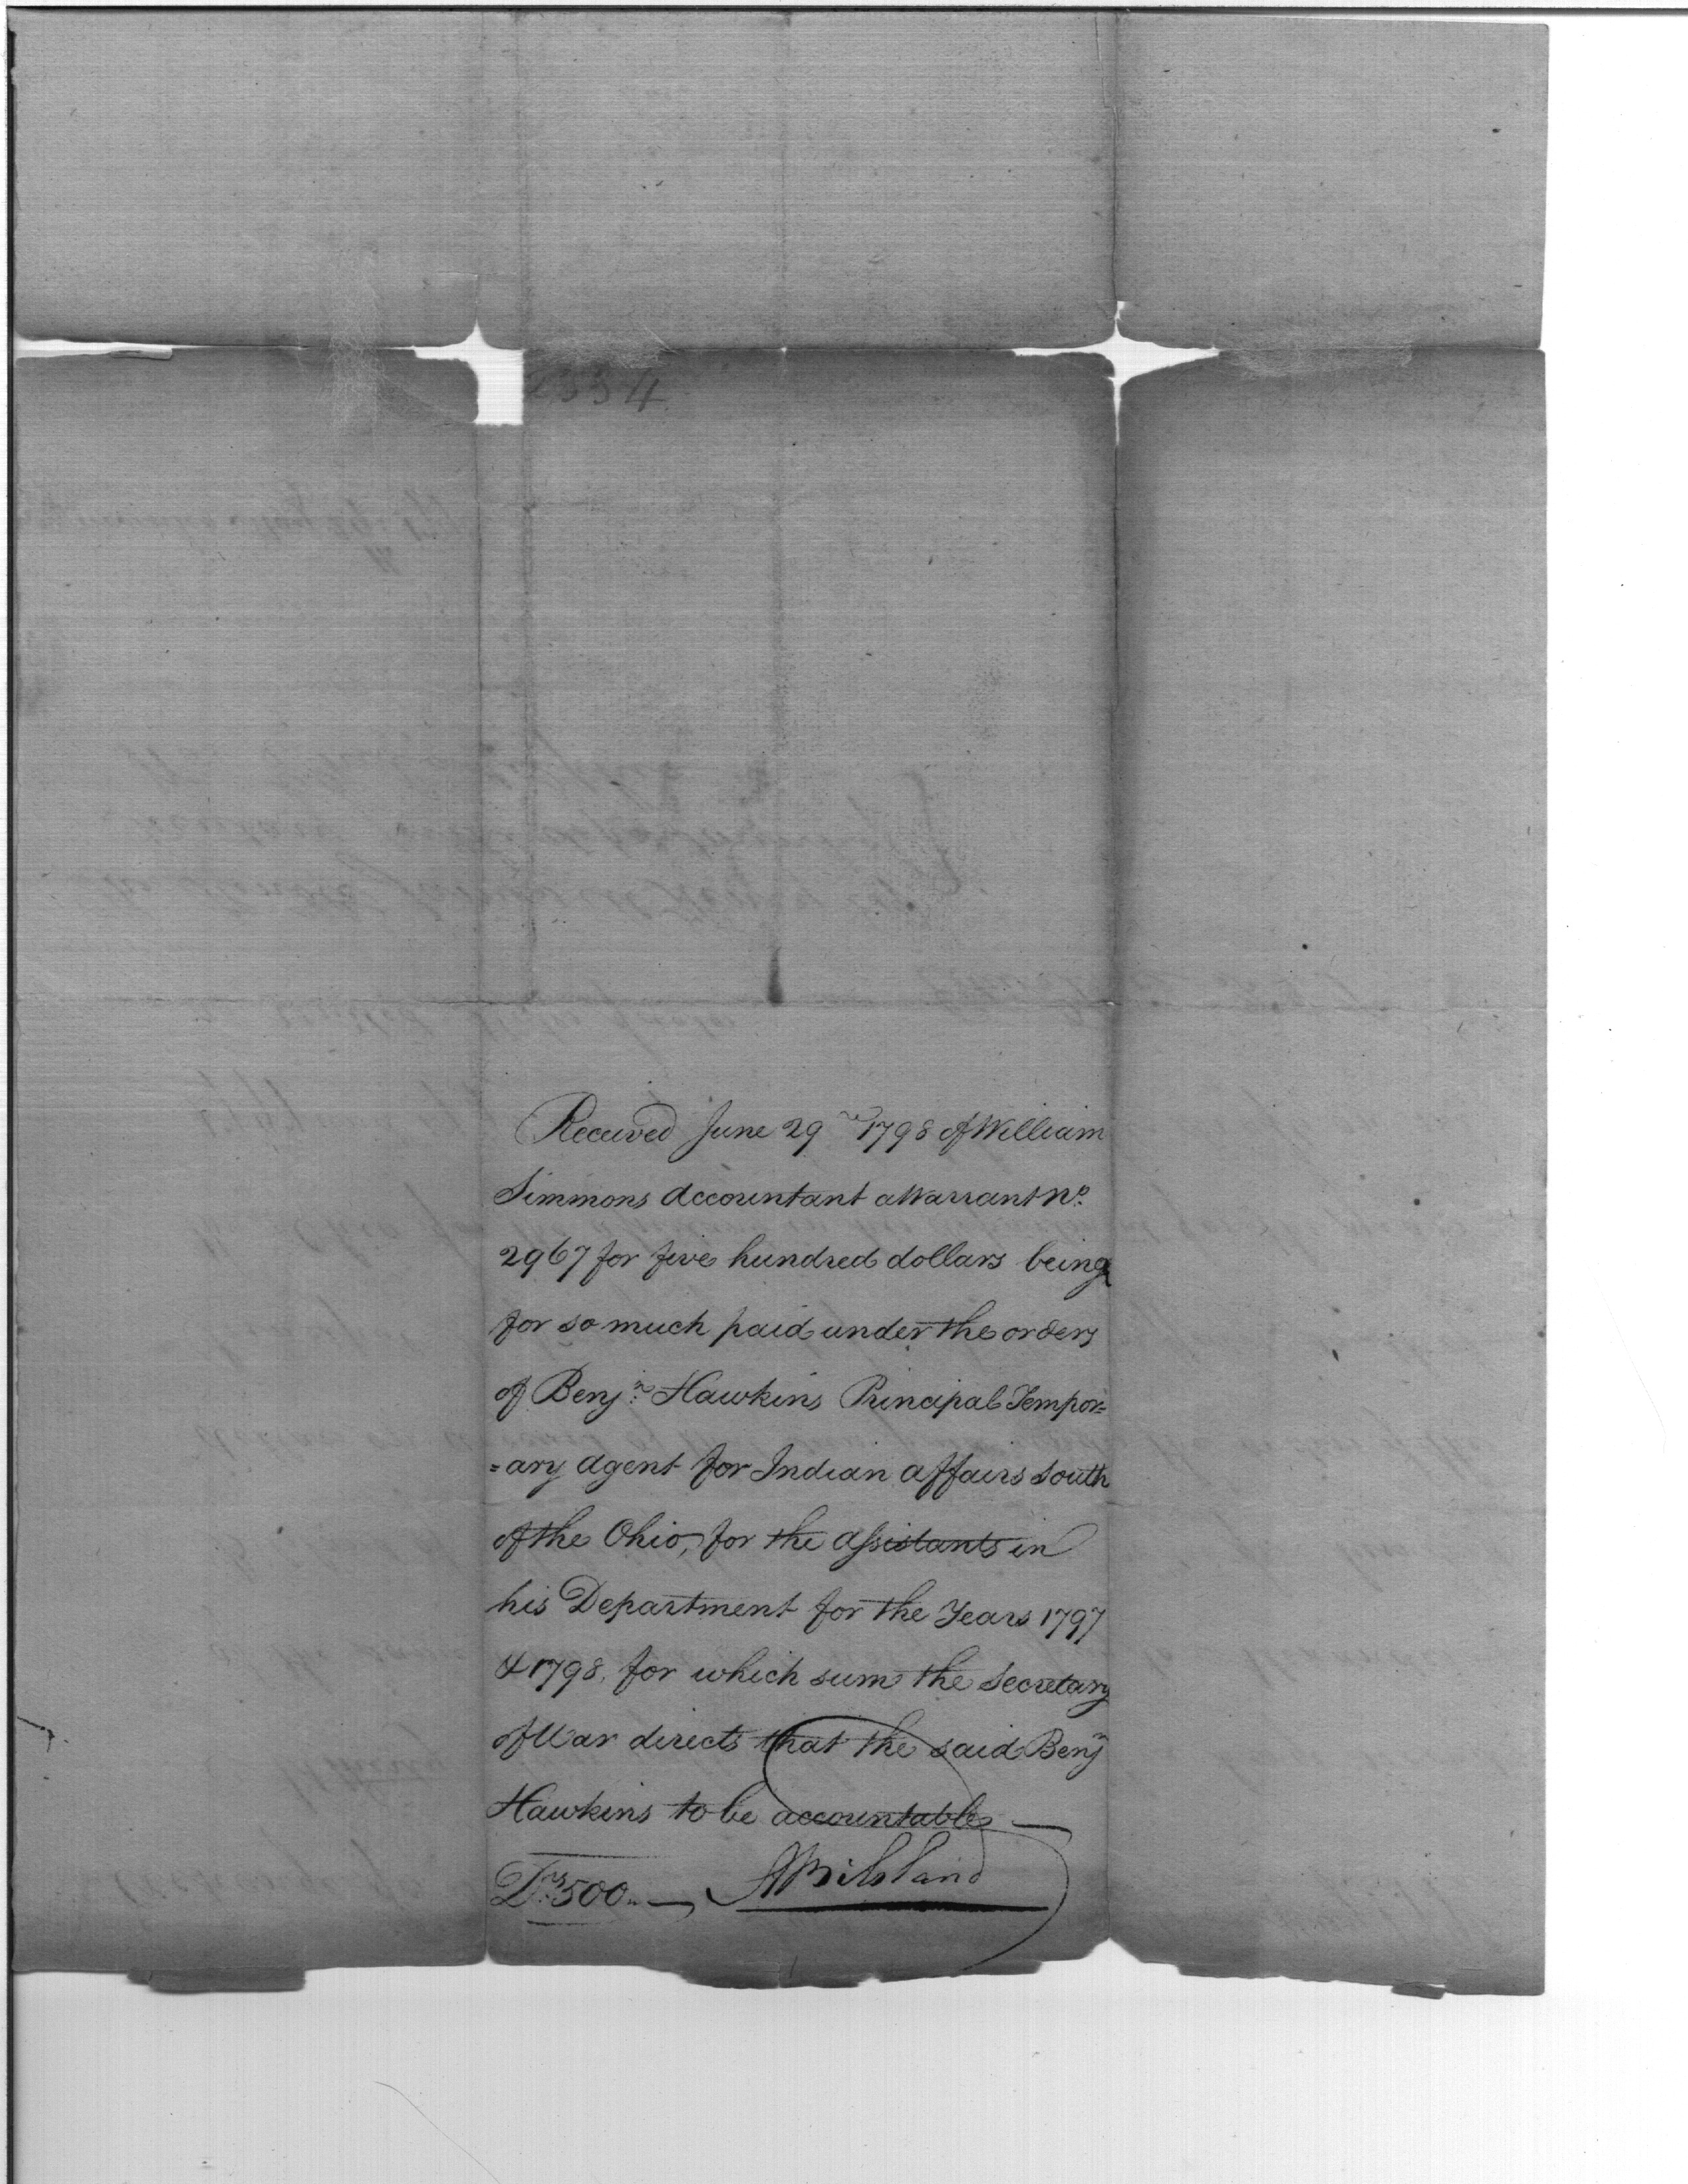 334
Received June 29 1798 of William
Simmons Accountant a Warrant No.
2967 for five hundred dollars being
for so much paid under the orders
of Benjn. Hawkins Principal Tempor=
=ary Agent for Indian Affairs South
of the Ohio, for the assistants in
his Department for the Years 1797
& 1798, for which sum the Secretary
of War directs that the said Benjn
Hawkins to be accountable —
Drs. 500